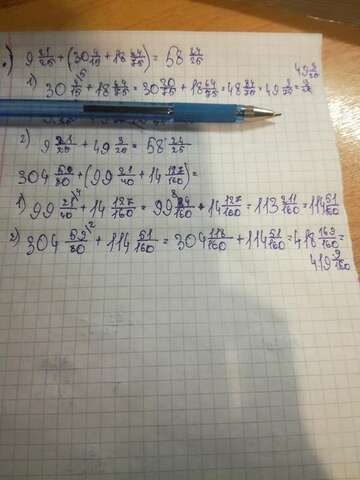 9 21/25 + (30 4/15 + 18 64/75) = 58 24/25
49 3/25
1) 30 4/15 + 18 64/75 = 30 20/75 + 18 64/75 = 48 84/75 = 49 9/75 =
2) 9 21/25 + 49 3/25 = 58 24/25
304 59/80 + (99 21/40 + 14 127/160) =
1) 99 21/40 + 14 127/160 = 99 84/160 + 14 127/160 = 113 211/160 = 114 51/160
2) 304 59/80 + 114 51/160 = 304 118/160 + 114 51/160 = 418 169/160 =
419 9/160